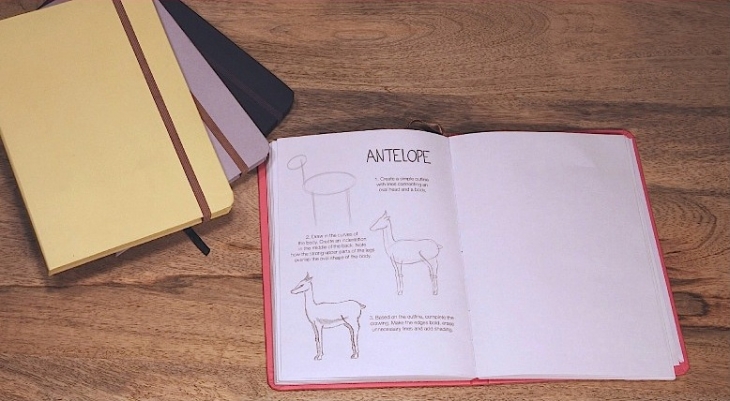 ANTELOPE
1. Create a simple outline
with lines connecting an
oval head and a body.
2. Draw in the curves of
the body. Create an indentation
in the middle of the back. Note
how the strong upper parts of the legs
overlap the oval shape of the body.
3. Based on the outline, complete the
drawing. Make the edges bold, erase
unnecessary lines and add shading.